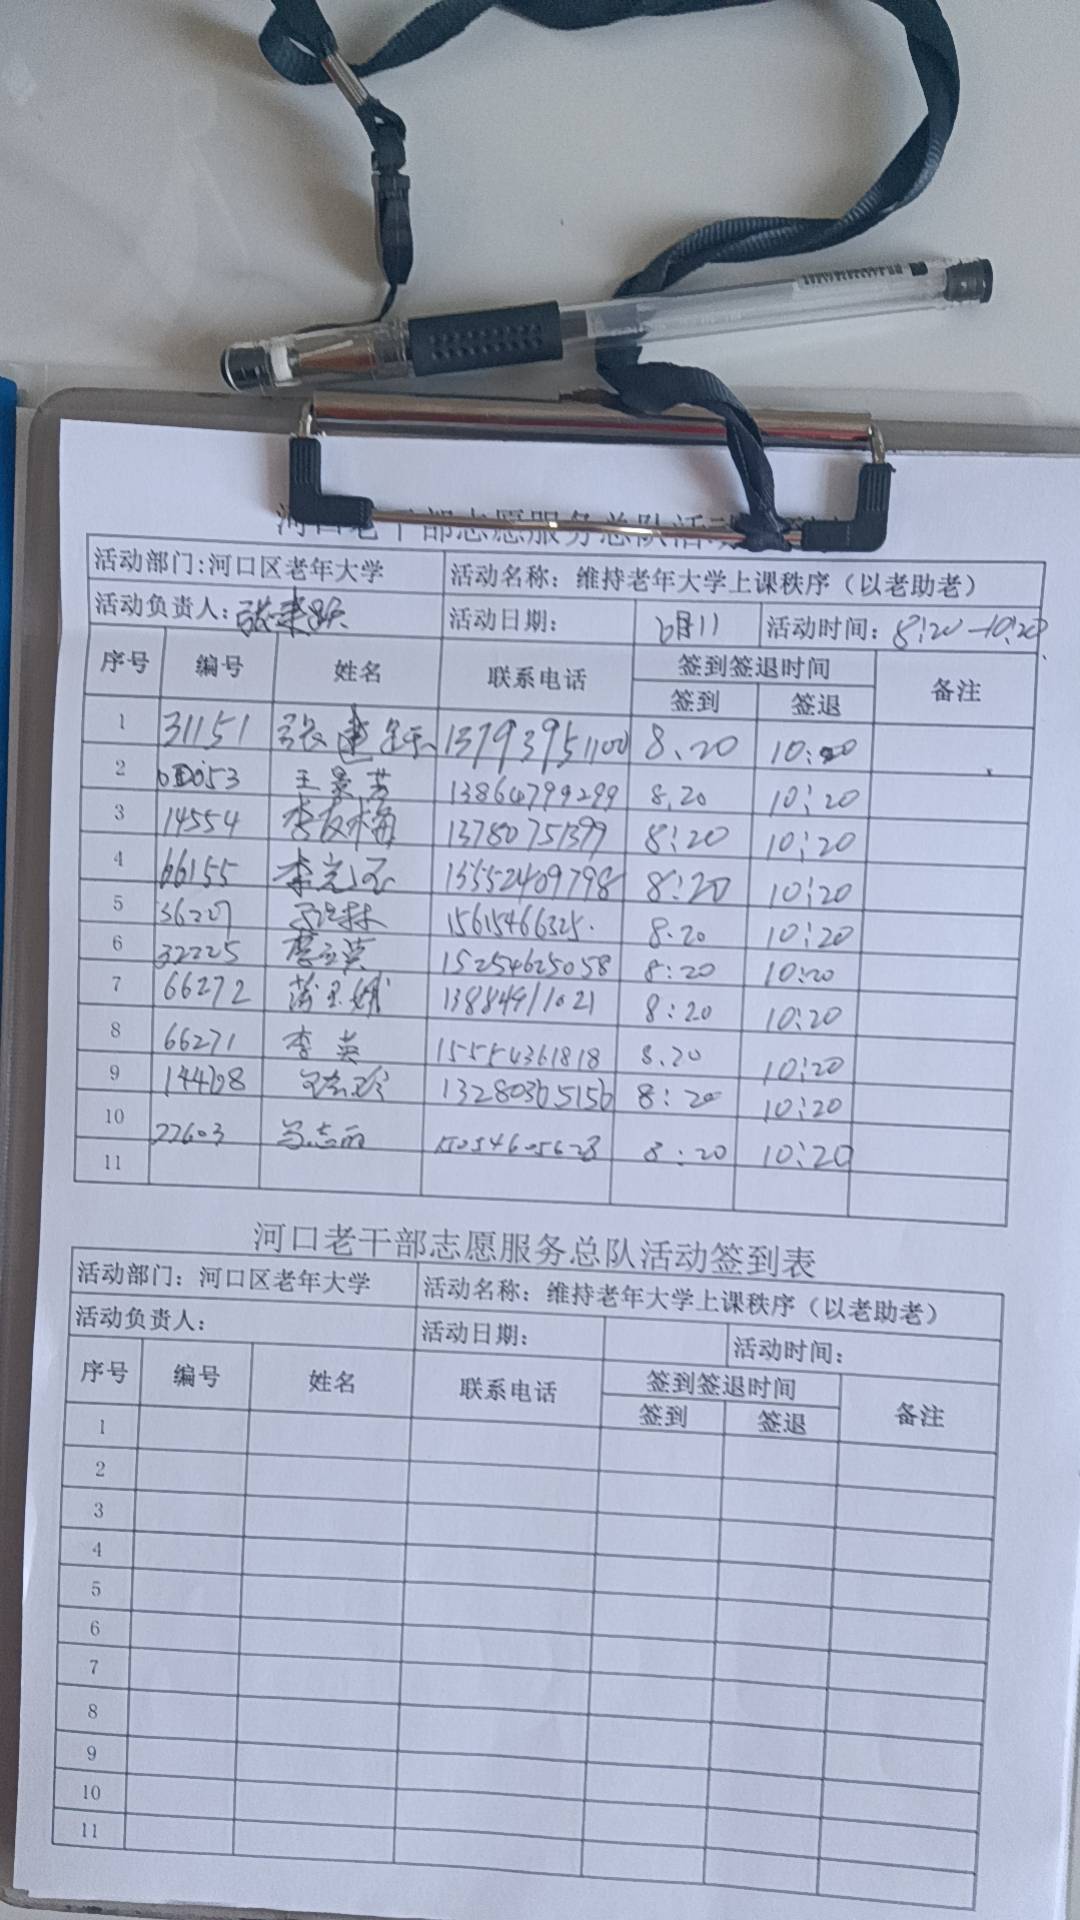 河口老干部志愿服务总队活动
活动部门:河口区老年大学 活动名称：维持老年大学上课秩序（以老助老）
活动负责人： 活动日期： 6月11 活动时间：8:20-10:20
序号 编号 姓名 联系电话 签到签退时间 备注
签到 签退
1 31151 13793951100 8.20
2 王景芳 13864799299 8.20 10:20
3 14554 李友梅 13780751399 8:20 10:20
4 66155 13552409798 8:20 10:20
5 36207 15615466325. 8.20 10:20
6 32225 15254625058 8:20 10:20
7 66272 13884911021 8:20 10:20
8 66271 李英 15554361818 8.20 10:20
9 14468 13280365156 8:20 10:20
10 22603 8:20 10:20
11
河口老干部志愿服务总队活动签到表
活动部门：河口区老年大学 活动名称：维持老年大学上课秩序（以老助老）
活动负责人： 活动日期： 活动时间：
序号 编号 姓名 联系电话 签到签退时间 备注
签到 签退
1
2
3
4
5
6
7
8
9
10
11